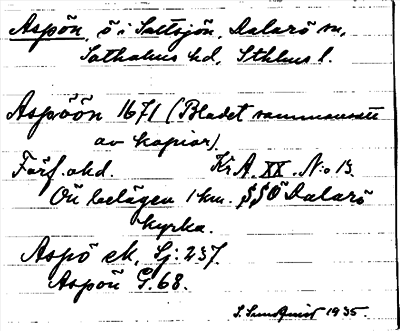 Aspön, ö i Saltsjön, Dalarö sn,
Sotholms hd, Sthlms l.
Aspöön 1671 (Bladet sammansatt
av kopior).
Förf. okd. Kr.A. XX. N:o 13.
Ön belägen 1 km. SSÖ Dalarö
kyrka.
Aspö ek, Sj: 237.
Aspön G. 68.
S. Sundqvist 1935.